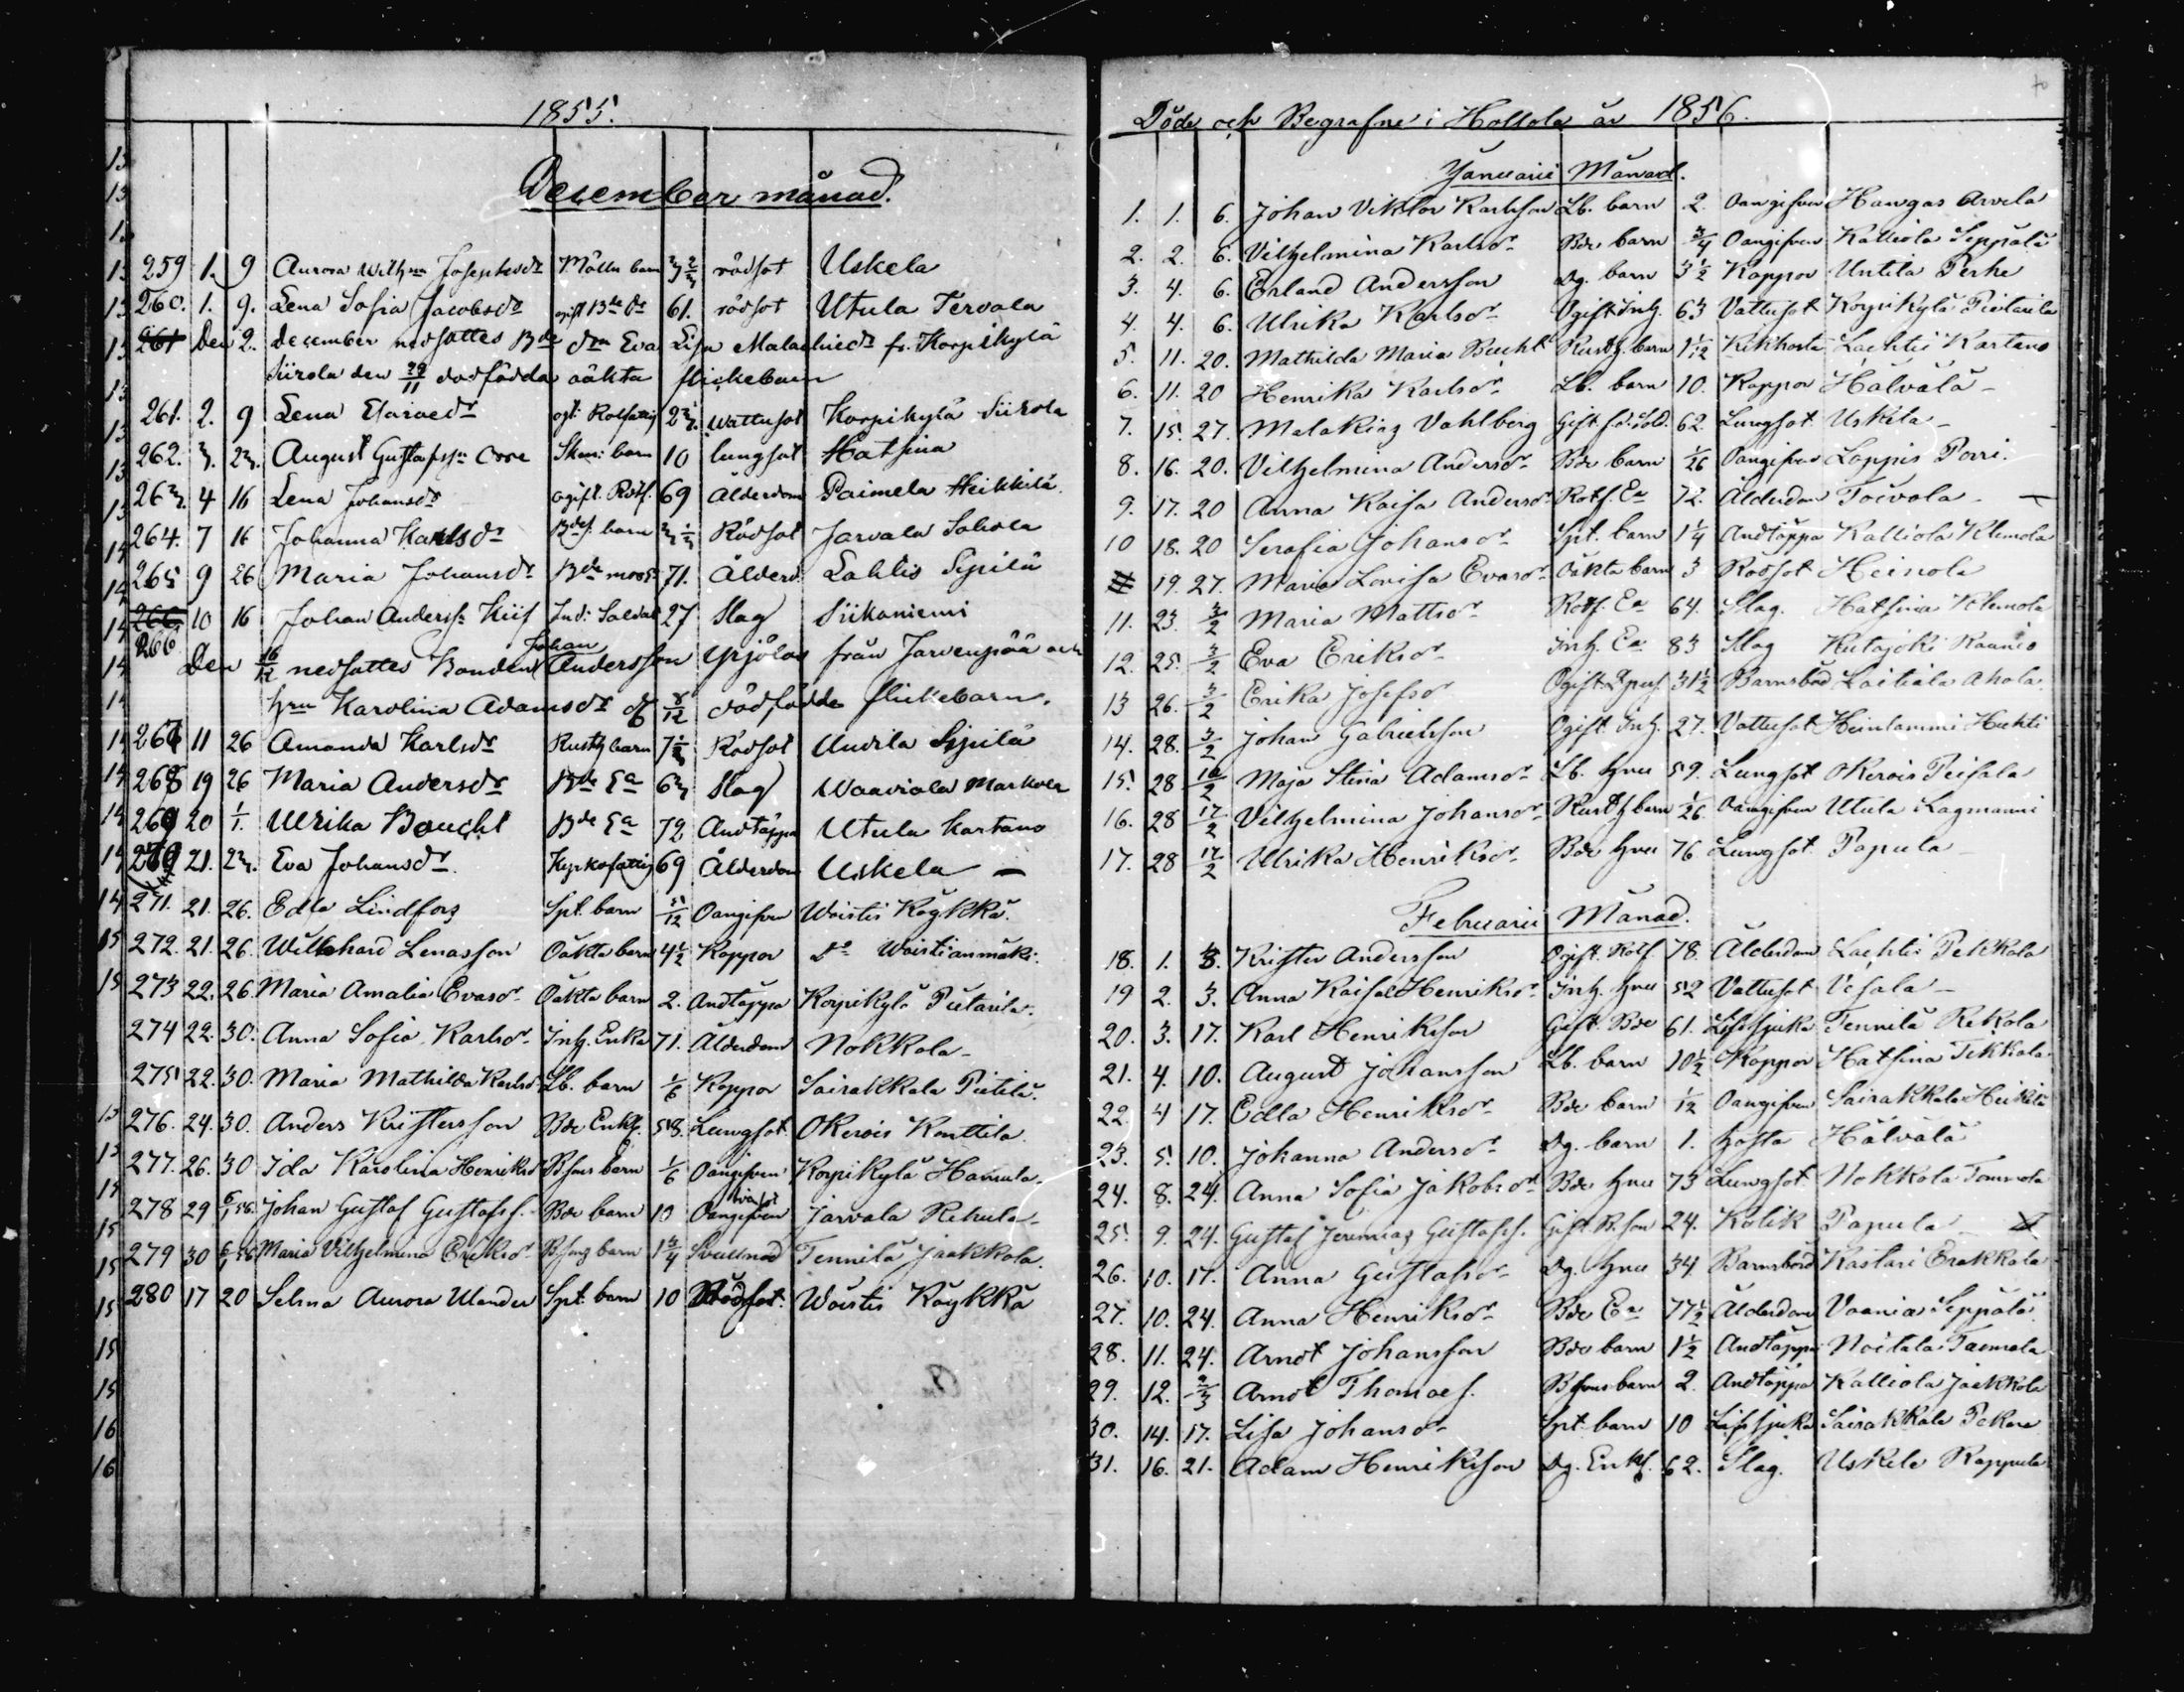 1855.
December månad.
259 1. 9 Aurora Wilhna Josephsdr Mölln. barn 3 2/3 rödsot Uskela
260. 1. 9. Lena Sofia Jacobsdr ogift Bde dr 61. rödsot Utula Tervala
261 Den 2. december nedsattes Bde drn Eva Lisa Malachiedr fr. Korpikylä
Siirola den 29/11 dödfödda oäkta flickebarn
261. 2. 9 Lena Isaacdr ogt. Rotfattig Wattusot Korpikylä Siirola
262. 3. 23. August Gustafssn Orre Sken: barn 10 lungsot Hatsina
263. 4 16 Lena Johansdr ogift. Rotf. 69 ålderdom Paimela Heikkilä
264. 7 16 Johanna Karlsdr Bdes. barn 3 1/3 Rödsot Jarvala Sokola
265 9 26 Maria Johansdr Bde mor 71. Ålderd. Lahtis Sipilä
266 10 16 Johan Anderssn Kiif Ind: Soldat 27 Slag Siikaniemi
266
Den 16/12 nedsattes Bonden Johan Andersson Yrjölas från Jarvenpää och
hru Karolina Adamsdr df 8/12 dödfödde flickebarn.
267 11 26 Amanda Karlsdr Rusth barn 7 1/2 Rödsot Uudila Sipilä
268 19 26 Maria Andersdr Bde Ea 63 Slag Waaviola Markola
269 20 1/1. Ulrika Boucht Bde Ea 72 Andtäppa Utula Kartano
270 21. 23. Eva Johansdr Kyrkofattig 69 Ålderdom Uskela –
271. 21. 26. Edla Lindfors Spt. barn 5/12 Oangifven Woistis Köykkä.
272. 21. 26. Willehard Lenasson Oäkta barn 4 1/2 Koppor do Woistianmäki.
273 22. 26. Maria Amalia Evasdr Oäkta barn 2. Andtäppa Korpikylä Pietarila.
274 22. 30. Anna Sofia Karlsdr Inh. Enka 71. Ålderdom Nokkola –
275 22. 30. Maria Mathilda Karlsdr Lb. barn 1/6 Koppor Sairakkala Pietilä.
276. 24. 30. Anders Kristersson Bde Enkl. 58. Lungsot. Okerois Konttila.
277. 26. 30 Ida Karolina Henriksdr Bsons barn 1/6 Oangifven Korpikylä Hannula.
278 29 6/1 56. Johan Gustaf Gustafss. Bde barn 10 Oangifven Järvala Rekula –
279 30 6/1 56 Maria Vilhelmina Eriksdr Bsons barn 1 3/4 Svullnad Tennilä Jaakkola.
280 17 20 Selma Aurora Ulander Spt. barn 10 Rödsot. Woistis Köykkä
Döde och Begrafne i Hollola år 1856.
Januarii Månad.
1. 1. 6. Johan Viktor Karlsson Lb. barn 2. Oangifven Hangas Arvela
2. 2. 6. Vilhelmina Karlsdr Bde barn 3/4 Oangifven Kalliola Seppälä
3. 4. 6. Erland Andersson Dg. barn 3 1/2 Koppor Untila Perhe
4. 4. 6. Ulrika Karlsdr Ogift Inh. 63 Vattusot Korpikylä Pietarila
5. 11. 20. Mathilda Maria Bucht Rusth. barn 1 1/12 Kikhosta Lachtis Kartano
6. 11. 20 Henrika Karlsdr Lb. barn 10. Koppor Hälvälä –
7. 15. 27. Malakias Vahlberg Gift f.d. Sold. 62. Lungsot Uskila –
8. 16. 20. Vilhelmina Andersdr Bde barn 1/26 Oangifven Loppis Porri.
9. 17. 20 Anna Kaisa Andersdr Rotf. Ea 72. Ålderdom Toivola –
10 18. 20 Serafia Johansdr Spt. barn 1 1/4 Andtäppa Kalliola Klemola
19. 27. Maria Lovisa Evasdr Oäkta barn 3 Rödsot Heinola
11. 23. 3/2 Maria Mattsdr Rotf. Ea 64. Slag. Hatsina Klemola
12. 25. 3/2 Eva Eriksdr Inh. Ea 83 Slag Kutajoki Raunio
13 26. 3/2 Erika Josefsdr Ogift 31 1/2 Barnsböd Laitiala Ahola
14. 28. 3/2 Johan Gabrielsson Ogift Inh. 27. Vattusot Heinlammi Huhti
15. 28 10/2 Maja Stina Adamsdr Lb. hru 59. Lungsot Okerois Peisala
16. 28 17/2 Vilhelmina Johansdr Rusth barn 1/26 Oangifven Utula Lagmanni
17. 28 17/2 Ulrika Henriksdr Bde hru 76 Lungsot Papula
Februarii Månad.
18. 1. 3. Krister Andersson Ogift. Rotf. 78. Ålderdom Lachtis Pekkala
19 2. 3. Anna Kaisa Henriksdr Inh. hru 52 Vattusot Vesala –
20. 3. 17. Karl Henriksson Gift. Bde 61. Lifssjuka Tennilä Rekola
21. 4. 10. August Johansson Lb. barn 10 1/2 Koppor Hatsina Tekkala
22. 4 17. Edla Henriksdr Bde barn 1/12 Oangifven Sairakkala Heikilä
23. 5. 10. Johanna Andersdr Dg. barn 1. Hosta Hälvälä
24. 8. 24. Anna Sofia Jakobsdr Bde hru 73 Lungsot Nokkola Tommola
25. 9. 24. Gustaf Jeremias Gustafss. Gift B. son 24. Kolik Papula –
26. 10. 17. Anna Gustafsdr Dg. hru 34 Barnsböd Kastari Erakkala
27. 10. 24. Anna Henriksdr Bde Ea 77 1/2 Ålderdom Vaania Seppälä.
28. 11. 24. Arndt Johansson Bde barn 1 1/2 Andtäppa Noitala Taemala
29. 12. 2/3 Arndt Thomaes. Bsons barn 2. Andtäppa Kalliola Jaakkola
30. 14. 17. Lisa Johansdr Spt. barn 10 Lifssjuka Sairakkala Pekan
31. 16. 21. Adam Henriksson Dg. Enkl. 62. Slag. Uskila Rappula